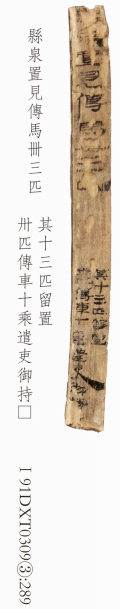 縣泉置見傳馬卌三匹
其十三匹留置
卅匹傳車十乘遣吏御持□
I 91DXT0309③:289